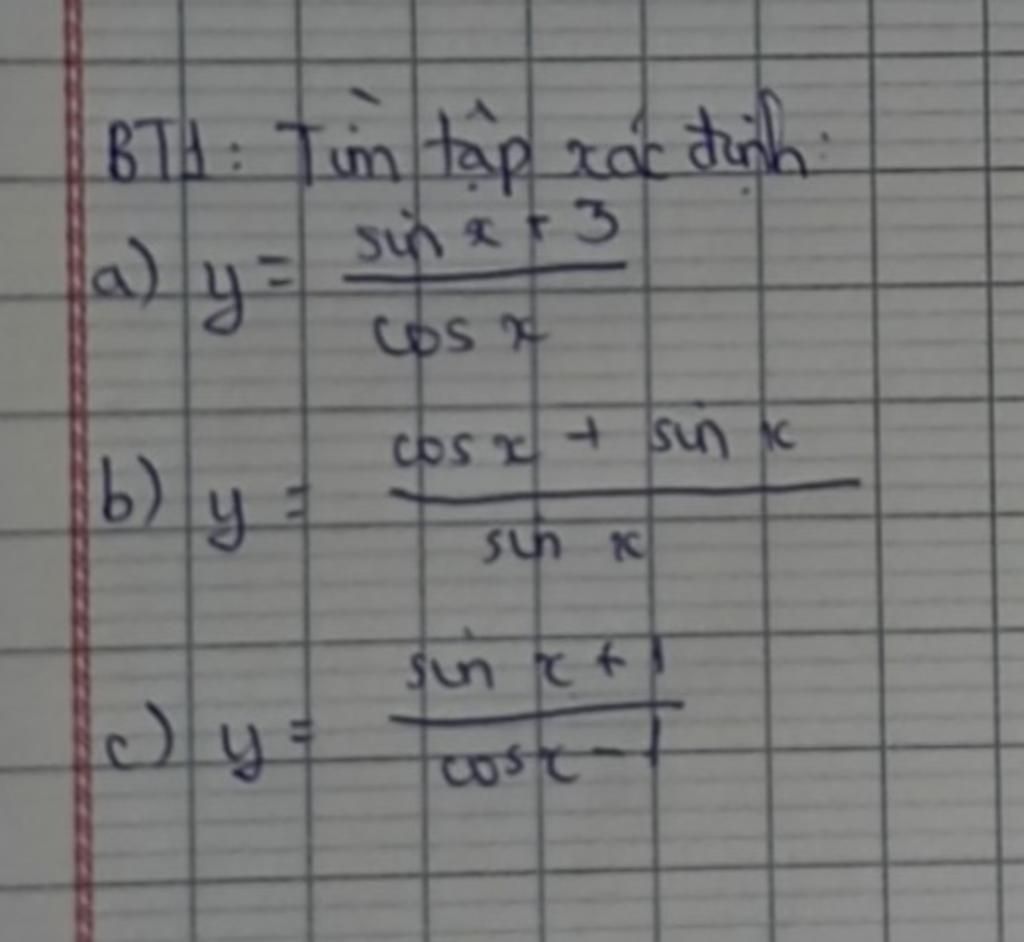 BT1: Tìm tập xác định:
a) y = \frac{sin x + 3}{cos x}
b) y = \frac{cos x + sin x}{sin x}
c) y = \frac{sin x + 1}{cos x - 1}